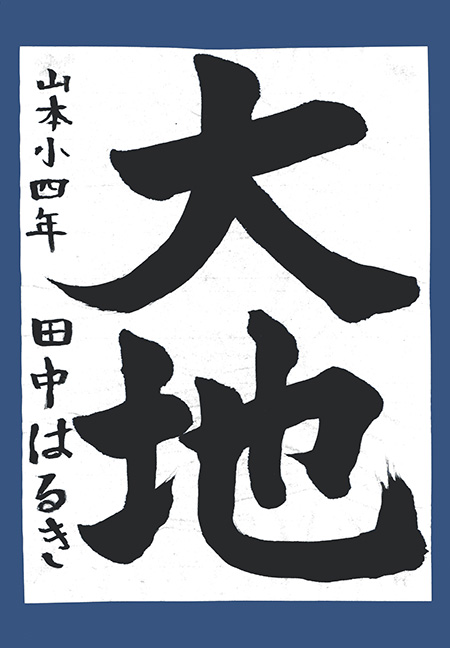 大地
山本小四年 田中はるき